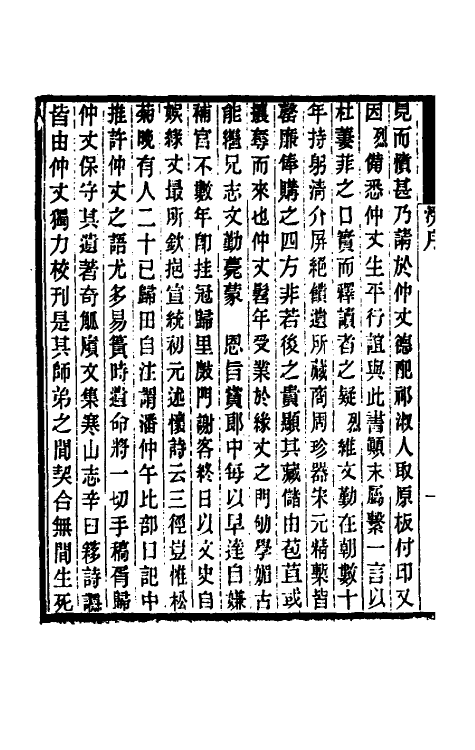 潘序
一
見而憤甚乃請於仲丈德配祁淑人取原板付印又
因烈備悉仲丈生平行誼與此書顛末屬繫一言以
杜萋菲之口實而釋讀者之疑烈維文勤在朝數十
年持躬清介屏絕饋遺所藏商周珍器宋元精槧皆
罄廉俸購之四方非若後之貴顯其藏儲由苞苴或
攘奪而來也仲丈髫年受業於緣丈之門劬學媚古
能繼兄志文勤薨蒙　恩旨賞郎中每以早達自嫌
補官不數年卽挂冠歸里鍵門謝客終日以文史自
娛緣丈最所欽挹宣統初元述懷詩云三徑豈惟松
菊晚有人二十已歸田自注謂潘仲午比部日記中
推許仲丈之語尤多易簀時遺命將一切手稿胥歸
仲丈保守其遺著奇觚廎文集寒山志辛臼簃詩讔
皆由仲丈獨力校刊是其師弟之間契合無間生死